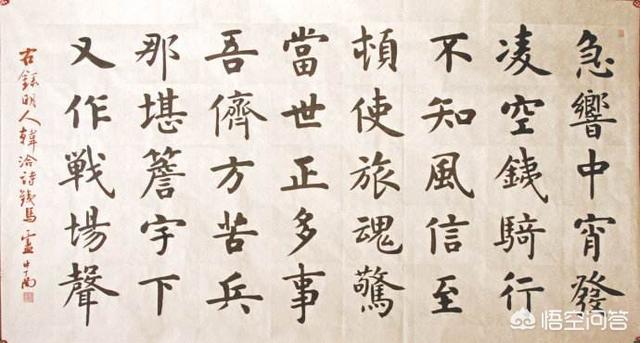 急響中宵發
凌空鉄騎行
不知風信至
頓使旅魂驚
當世正多事
吾儕方苦兵
那堪簷宇下
又作戰場聲
右録明人韓洽詩鐵馬 盧中南
悟空问答